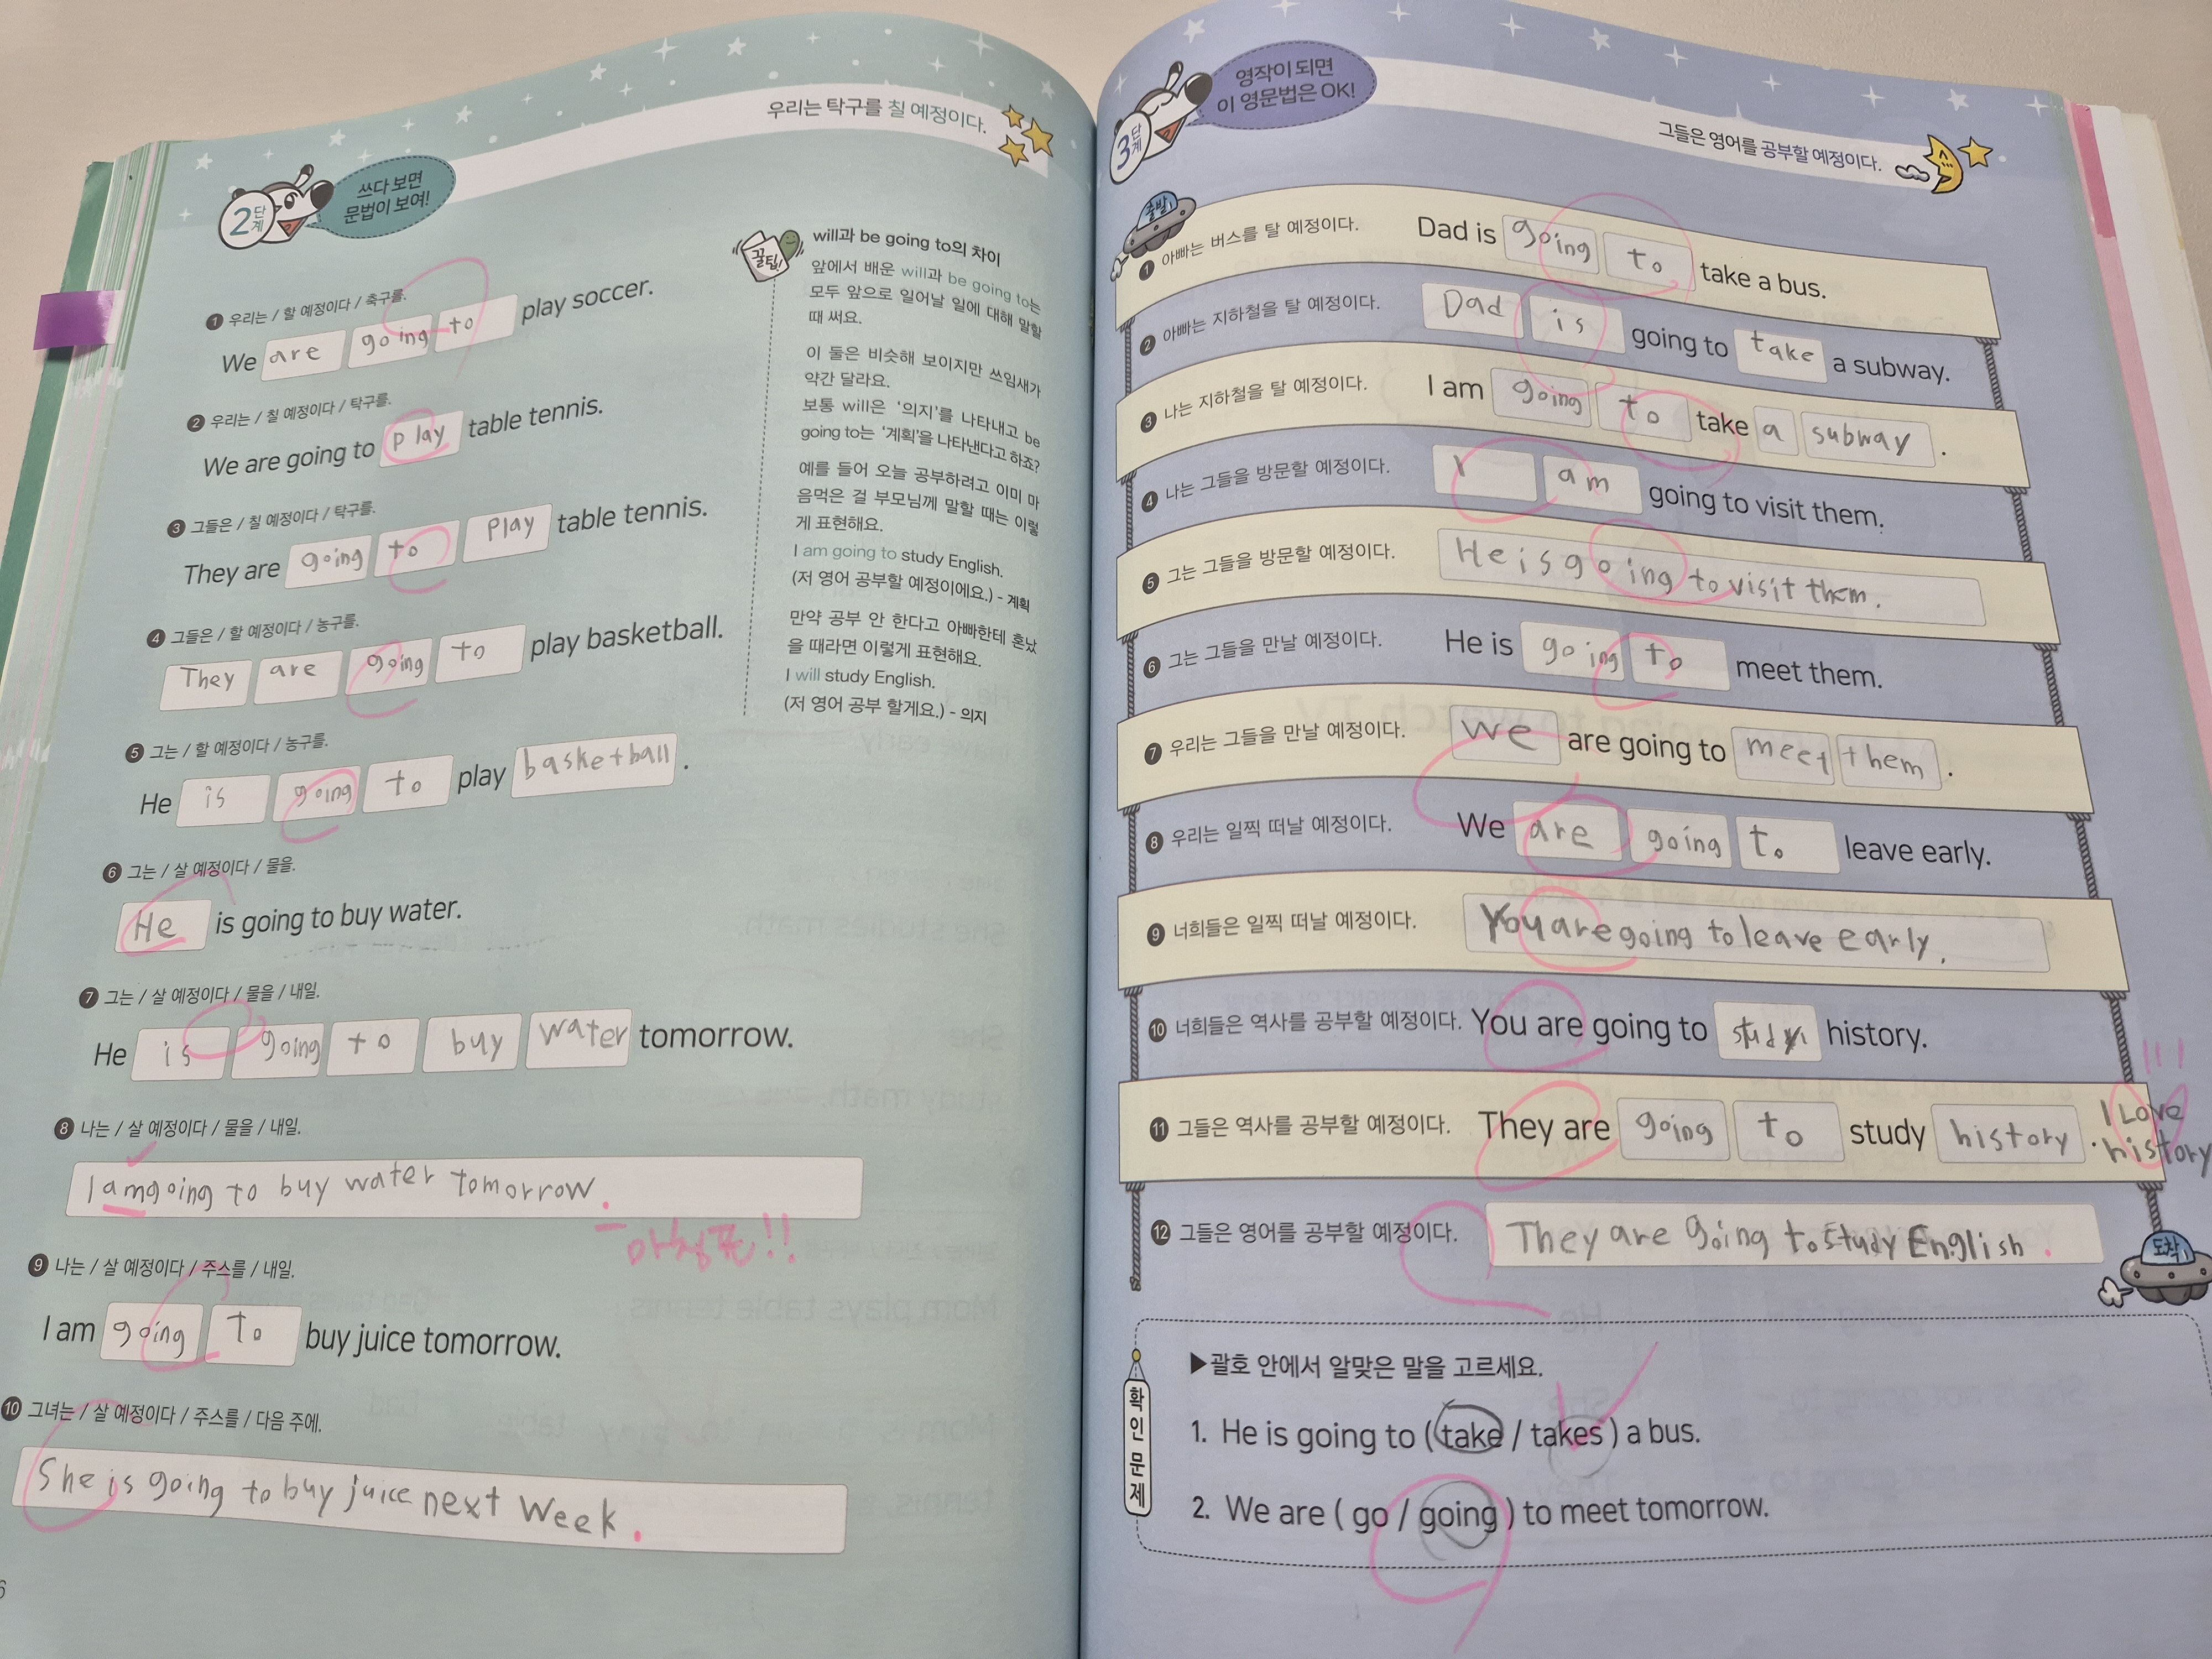 우리는 탁구를 칠 예정이다.
2단계
쓰다 보면
문법이 보여!
1 우리는 / 할 예정이다 / 축구를.
We are going to play soccer.
2 우리는 / 칠 예정이다 / 탁구를.
We are going to play table tennis.
3 그들은 / 칠 예정이다 / 탁구를.
They are going to play table tennis.
4 그들은 / 할 예정이다 / 농구를.
They are going to play basketball.
5 그는 / 할 예정이다 / 농구를.
He is going to play basketball.
6 그는 / 살 예정이다 / 물을.
He is going to buy water.
7 그는 / 살 예정이다 / 물을 / 내일.
He is going to buy water tomorrow.
8 나는 / 살 예정이다 / 물을 / 내일.
I am going to buy water tomorrow.
마침표!!
9 나는 / 살 예정이다 / 주스를 / 내일.
I am going to buy juice tomorrow.
10 그녀는 / 살 예정이다 / 주스를 / 다음 주에.
She is going to buy juice next week.
6
꿀팁!
will과 be going to의 차이
앞에서 배운 will과 be going to는
모두 앞으로 일어날 일에 대해 말할
때 써요.
이 둘은 비슷해 보이지만 쓰임새가
약간 달라요.
보통 will은 ‘의지’를 나타내고 be
going to는 ‘계획’을 나타낸다고 하죠?
예를 들어 오늘 공부하려고 이미 마
음먹은 걸 부모님께 말할 때는 이렇
게 표현해요.
I am going to study English.
(저 영어 공부할 예정이에요.) - 계획
만약 공부 안 한다고 아빠한테 혼났
을 때라면 이렇게 표현해요.
I will study English.
(저 영어 공부 할게요.) - 의지
3단계
영작이 되면
이 영문법은 OK!
그들은 영어를 공부할 예정이다.
출발!
1 아빠는 버스를 탈 예정이다. Dad is going to take a bus.
2 아빠는 지하철을 탈 예정이다. Dad is going to take a subway.
3 나는 지하철을 탈 예정이다. I am going to take a subway.
4 나는 그들을 방문할 예정이다. I am going to visit them.
5 그는 그들을 방문할 예정이다. He is going to visit them.
6 그는 그들을 만날 예정이다. He is going to meet them.
7 우리는 그들을 만날 예정이다. We are going to meet them.
8 우리는 일찍 떠날 예정이다. We are going to leave early.
9 너희들은 일찍 떠날 예정이다. You are going to leave early.
10 너희들은 역사를 공부할 예정이다. You are going to study history.
11 그들은 역사를 공부할 예정이다. They are going to study history.
I Love
history
!!!
12 그들은 영어를 공부할 예정이다. They are going to study English.
도착!
확인문제
▶괄호 안에서 알맞은 말을 고르세요.
1. He is going to ( take / takes ) a bus.
2. We are ( go / going ) to meet tomorrow.